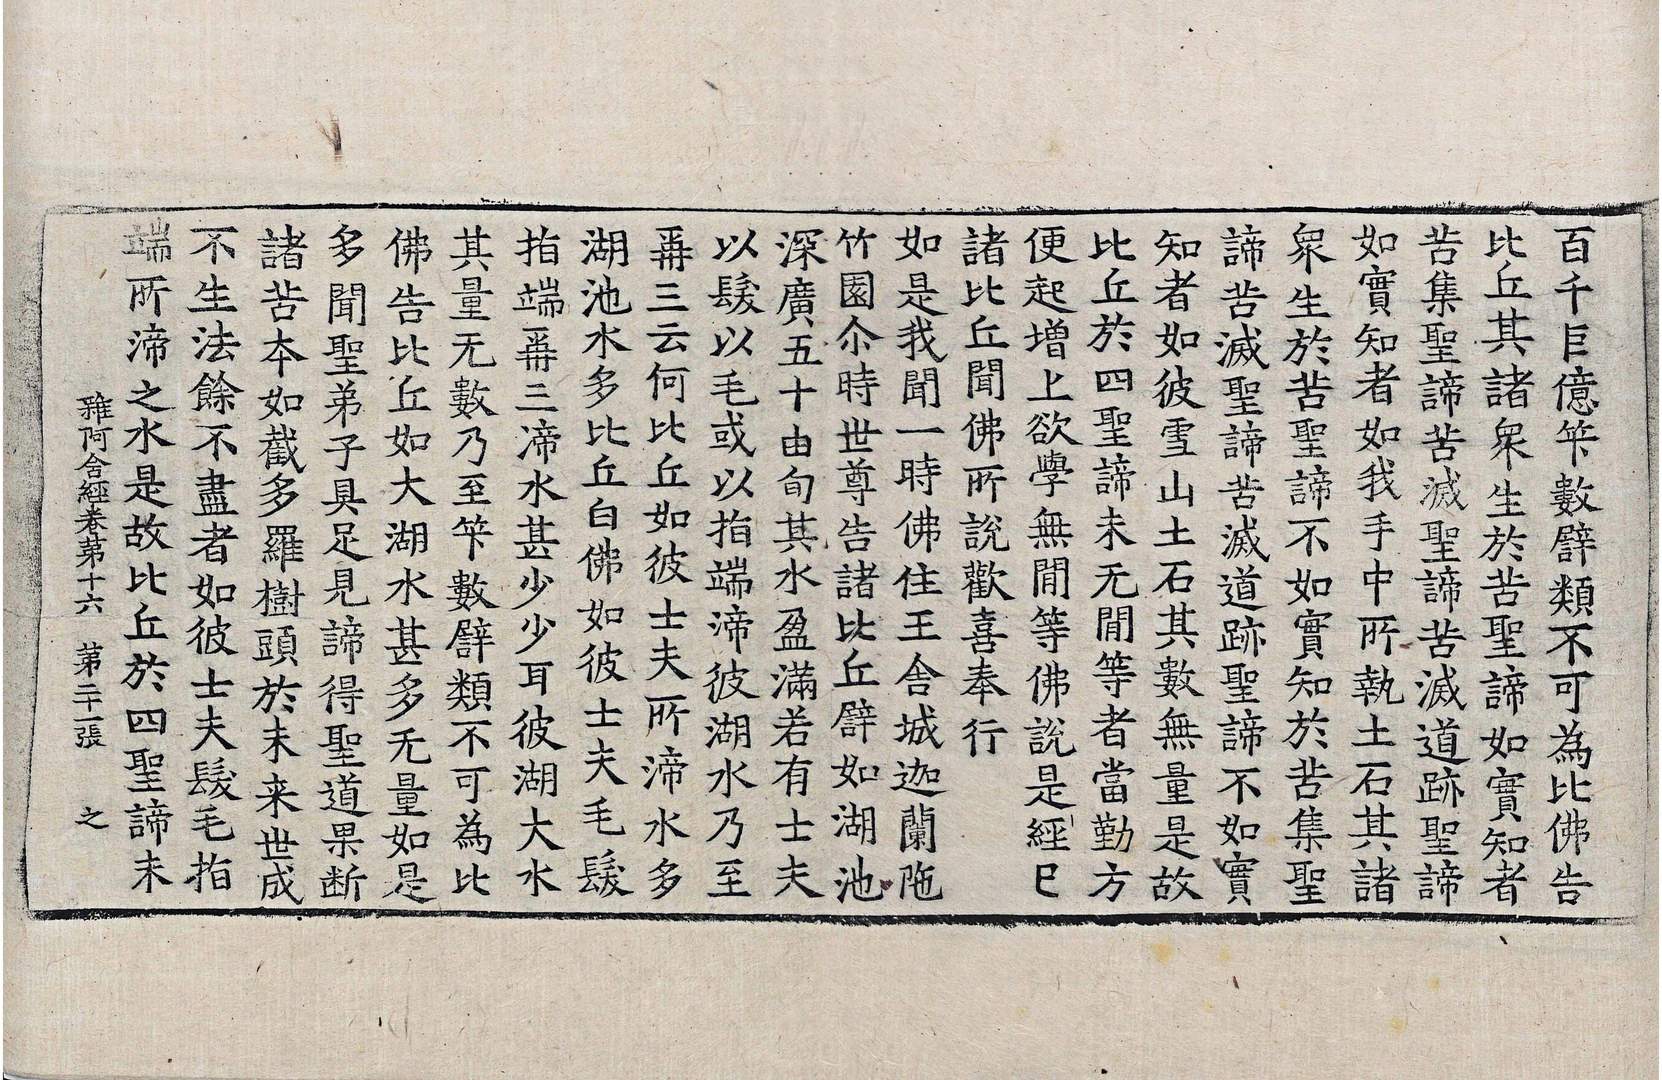 百千巨億筭數譬類不可為比佛告
比丘其諸衆生於苦聖諦如實知者
苦集聖諦苦滅聖諦苦滅道跡聖諦
如實知者如我手中所執土石其諸
衆生於苦聖諦不如實知於苦集聖
諦苦滅聖諦苦滅道跡聖諦不如實
知者如彼雪山土石其數無量是故
比丘於四聖諦未无閒等者當勤方
便起增上欲學無閒等佛說是經已
諸比丘聞佛所說歡喜奉行
如是我聞一時佛住王舍城迦蘭陁
竹園尒時世尊告諸比丘譬如湖池
深廣五十由旬其水盈滿若有士夫
以髮以毛或以指端渧彼湖水乃至
再三云何比丘如彼士夫所渧水多
湖池水多比丘白佛如彼士夫毛髮
指端再三渧水甚少少耳彼湖大水
其量无數乃至筭數譬類不可為比
佛告比丘如大湖水甚多无量如是
多聞聖弟子具足見諦得聖道果断
諸苦夲如截多羅樹頭於未来世成
不生法餘不盡者如彼士夫髮毛指
端所渧之水是故比丘於四聖諦未
雜阿含經卷第十六 第二十一張 之